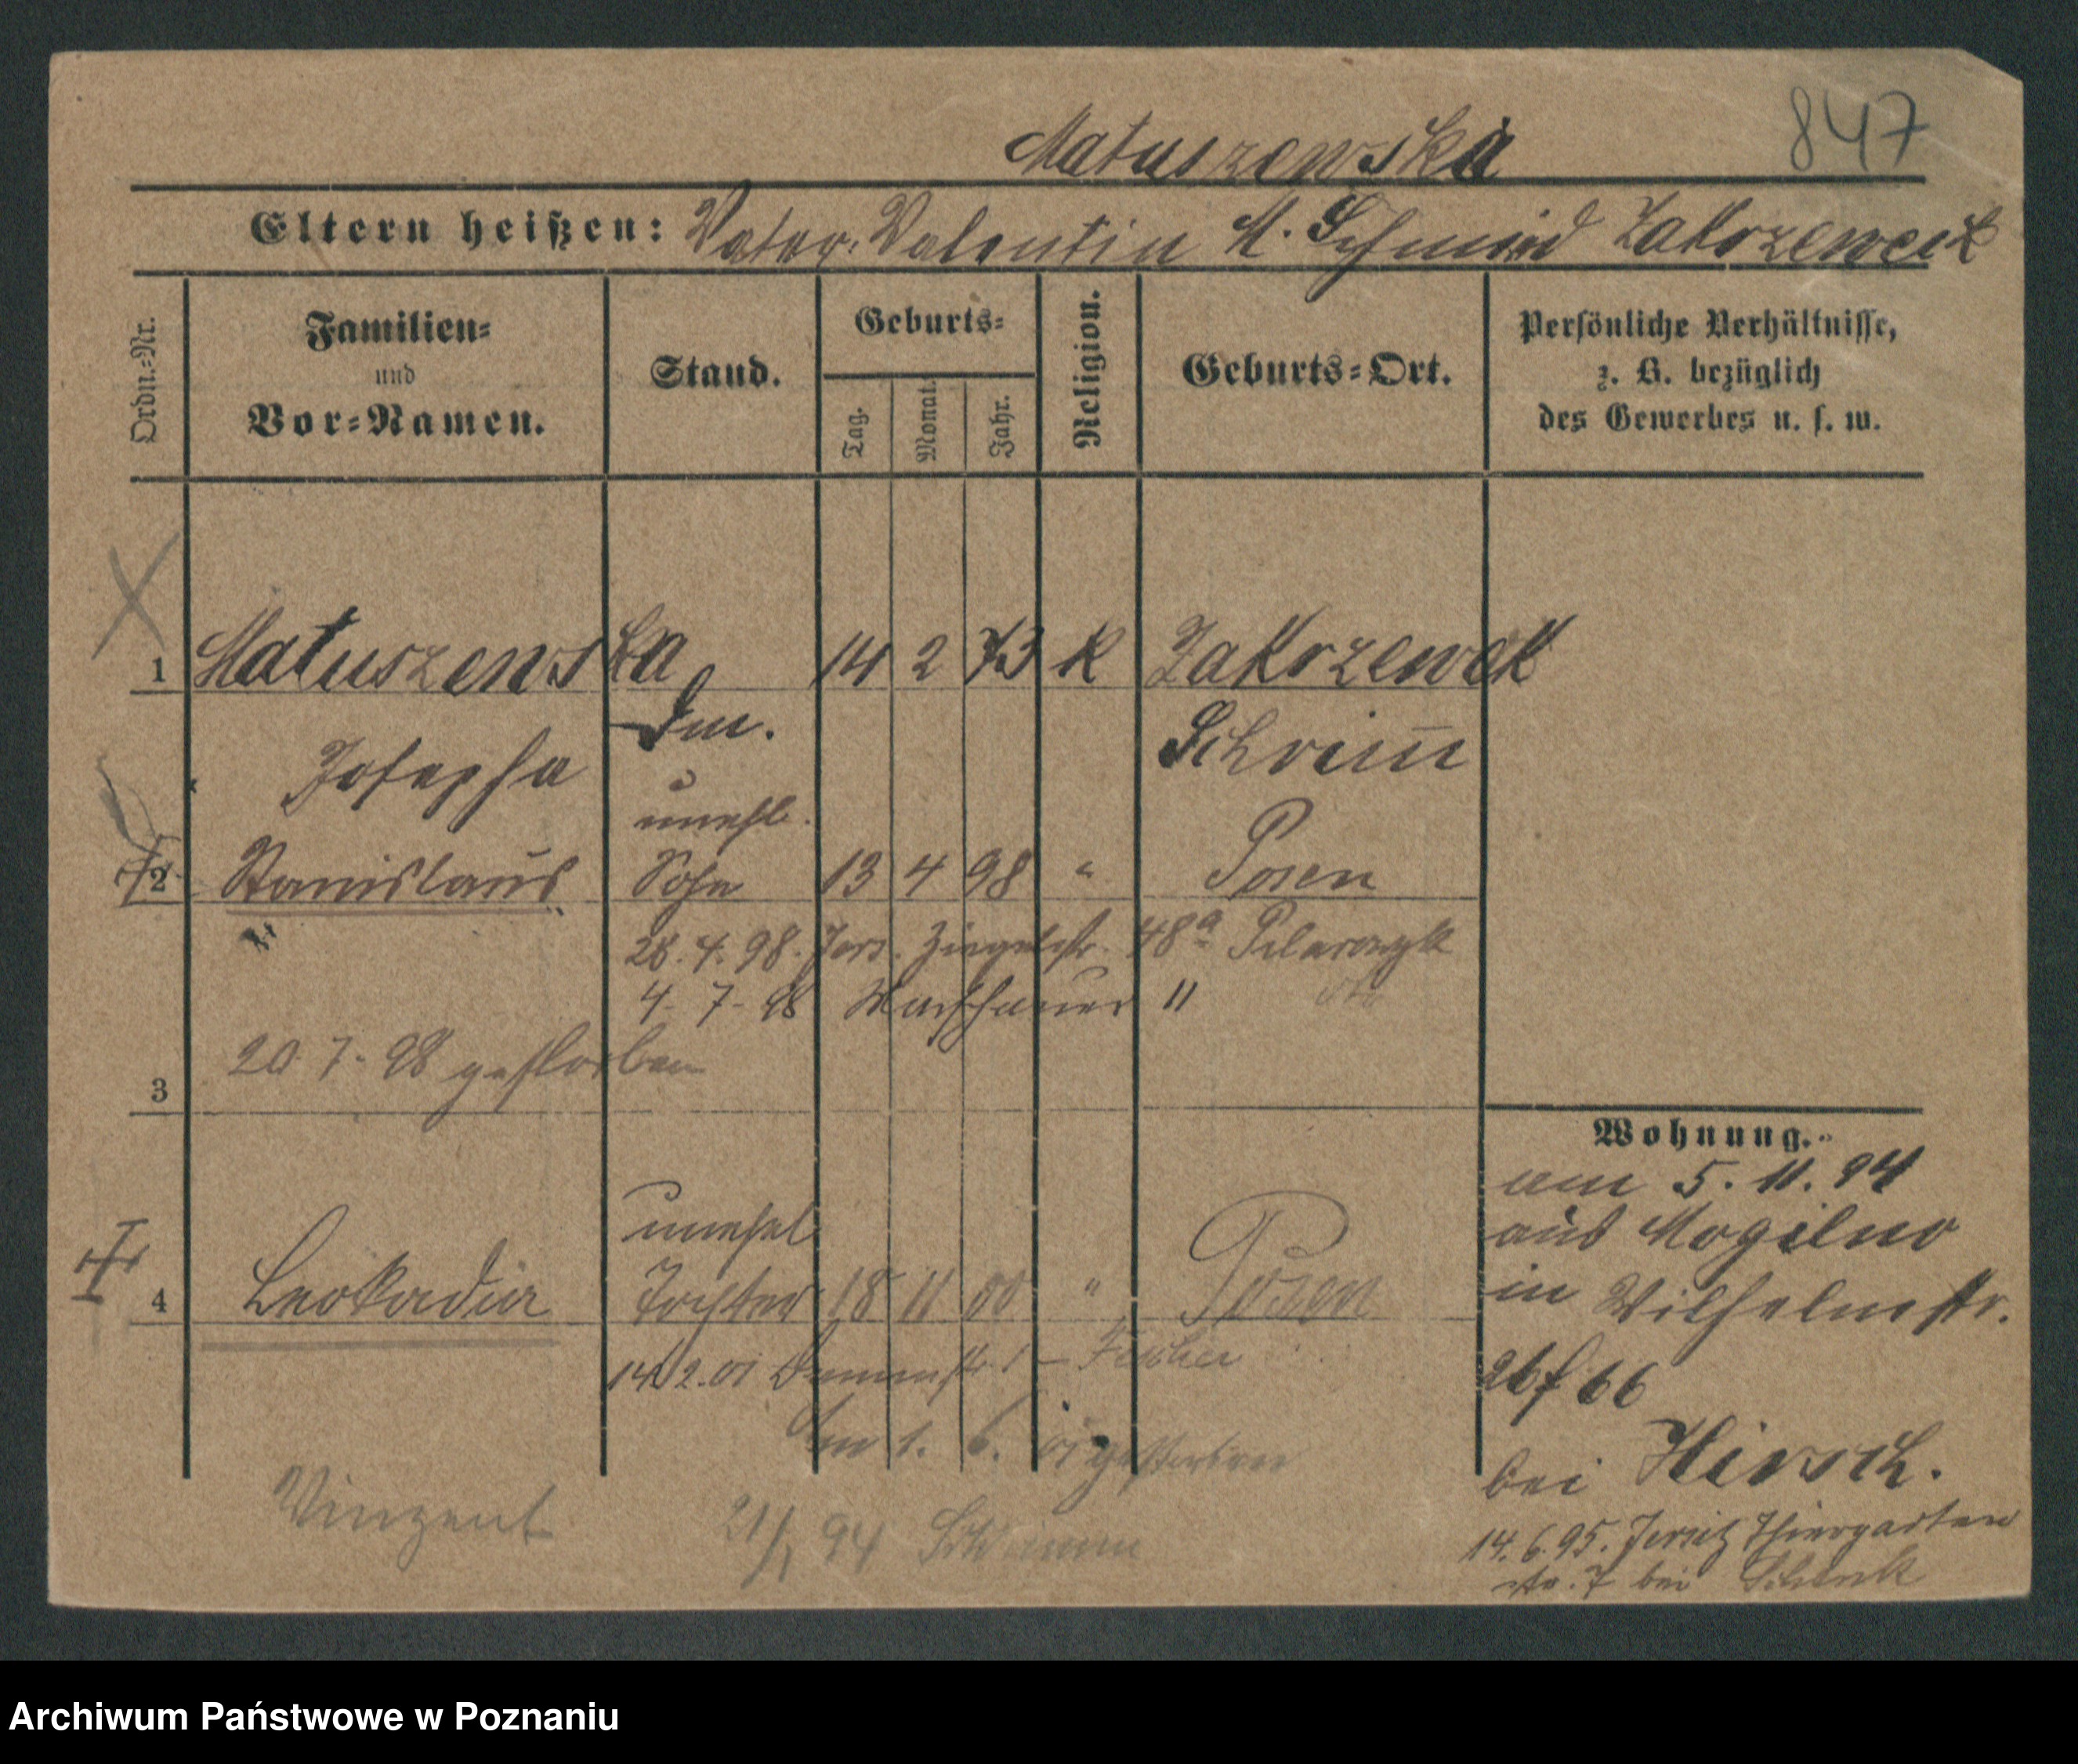 847
Matuszewska
Eltern heißen: Vater: Valentin M. Schmied Zakrzewek
Ordn.-Nr.
Familien-
und
Vor-Namen.
Stand.
Geburts-
Tag.
Monat.
Jahr.
Religion.
Geburts-Ort.
Persönliche Verhältnisse,
z. B. bezüglich
des Gewerbes u. s. w.
1 Matuszewska 14 2 73 K Zakrzewek
Schrimm
Josepha
unehl.
2 Stanislaus Sohn 13 4 98 " Posen
28. 4. 98. Jers. Ziegelstr. 48a
4. 7. 98 11
3
20. 7. 98 gestorben
unehel
4 Leokadia Tochter 18 11 00 " Posen
14. 2. 01 1 – Fischer
Am 1. 6. 01 gestorben
Vinzent 21/1 94 Schrimm
Wohnung.
am 5. 11. 94
aus Mogilno
in Wilhelmstr.
26
bei Hirsch.
14. 6. 95. Jersitz Thiergarten
str. 7 bei Schenk
Archiwum Państwowe w Poznaniu